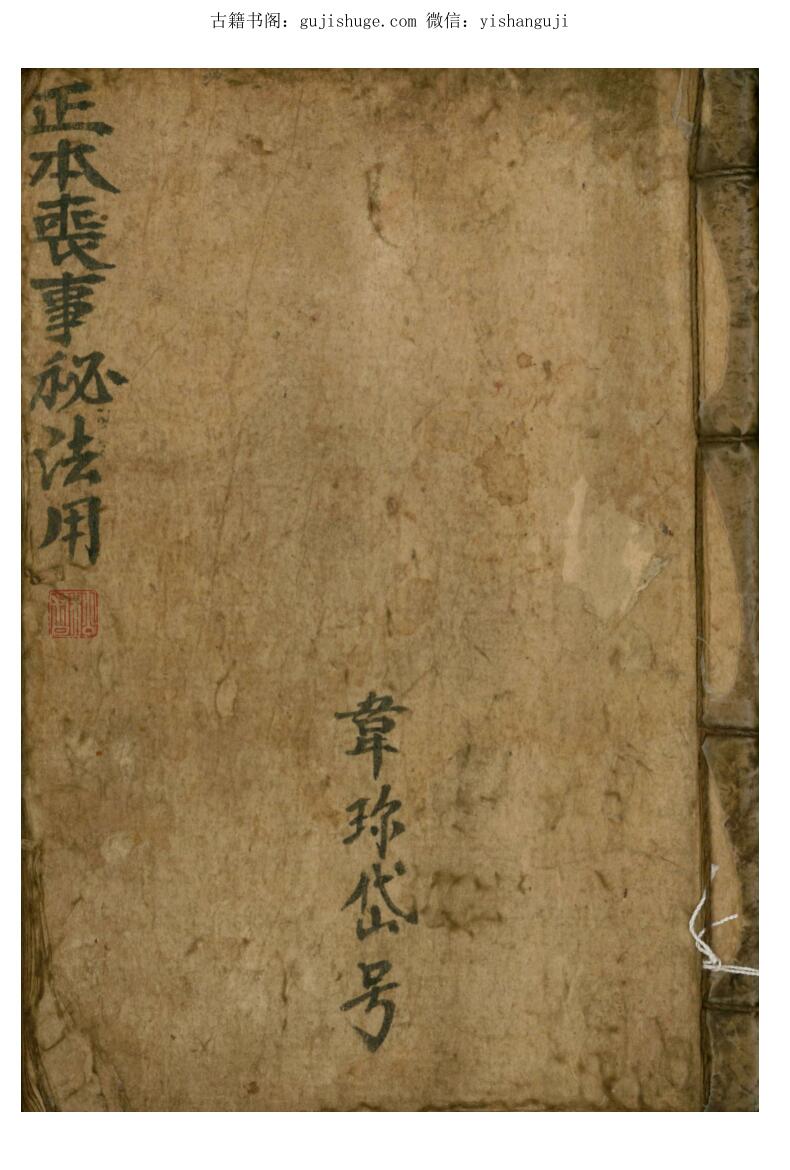 古籍书阁：gujishuge.com 微信：yishanguji
正本丧事秘法用
韋珎岱号